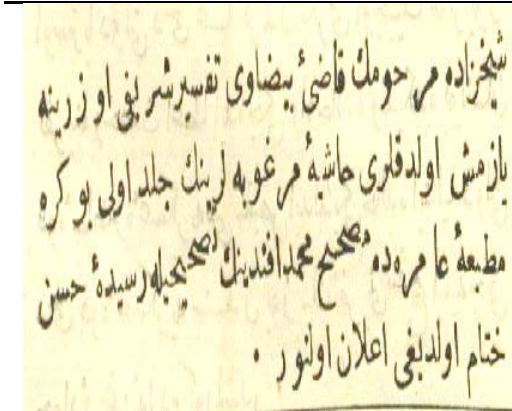 شیخزاده مرحومك قاضئ بیضاوی تفسیر شریفی اوزرینه
یازمش اولدقلری حاشیهٔ مرغوبه لرینك جلد اولی بو کره
مطبعهٔ عامره ده مصحح محمد افندینك تصحیحیله رسیدهٔ حسن
ختام اولدیغی اعلان اولنور .